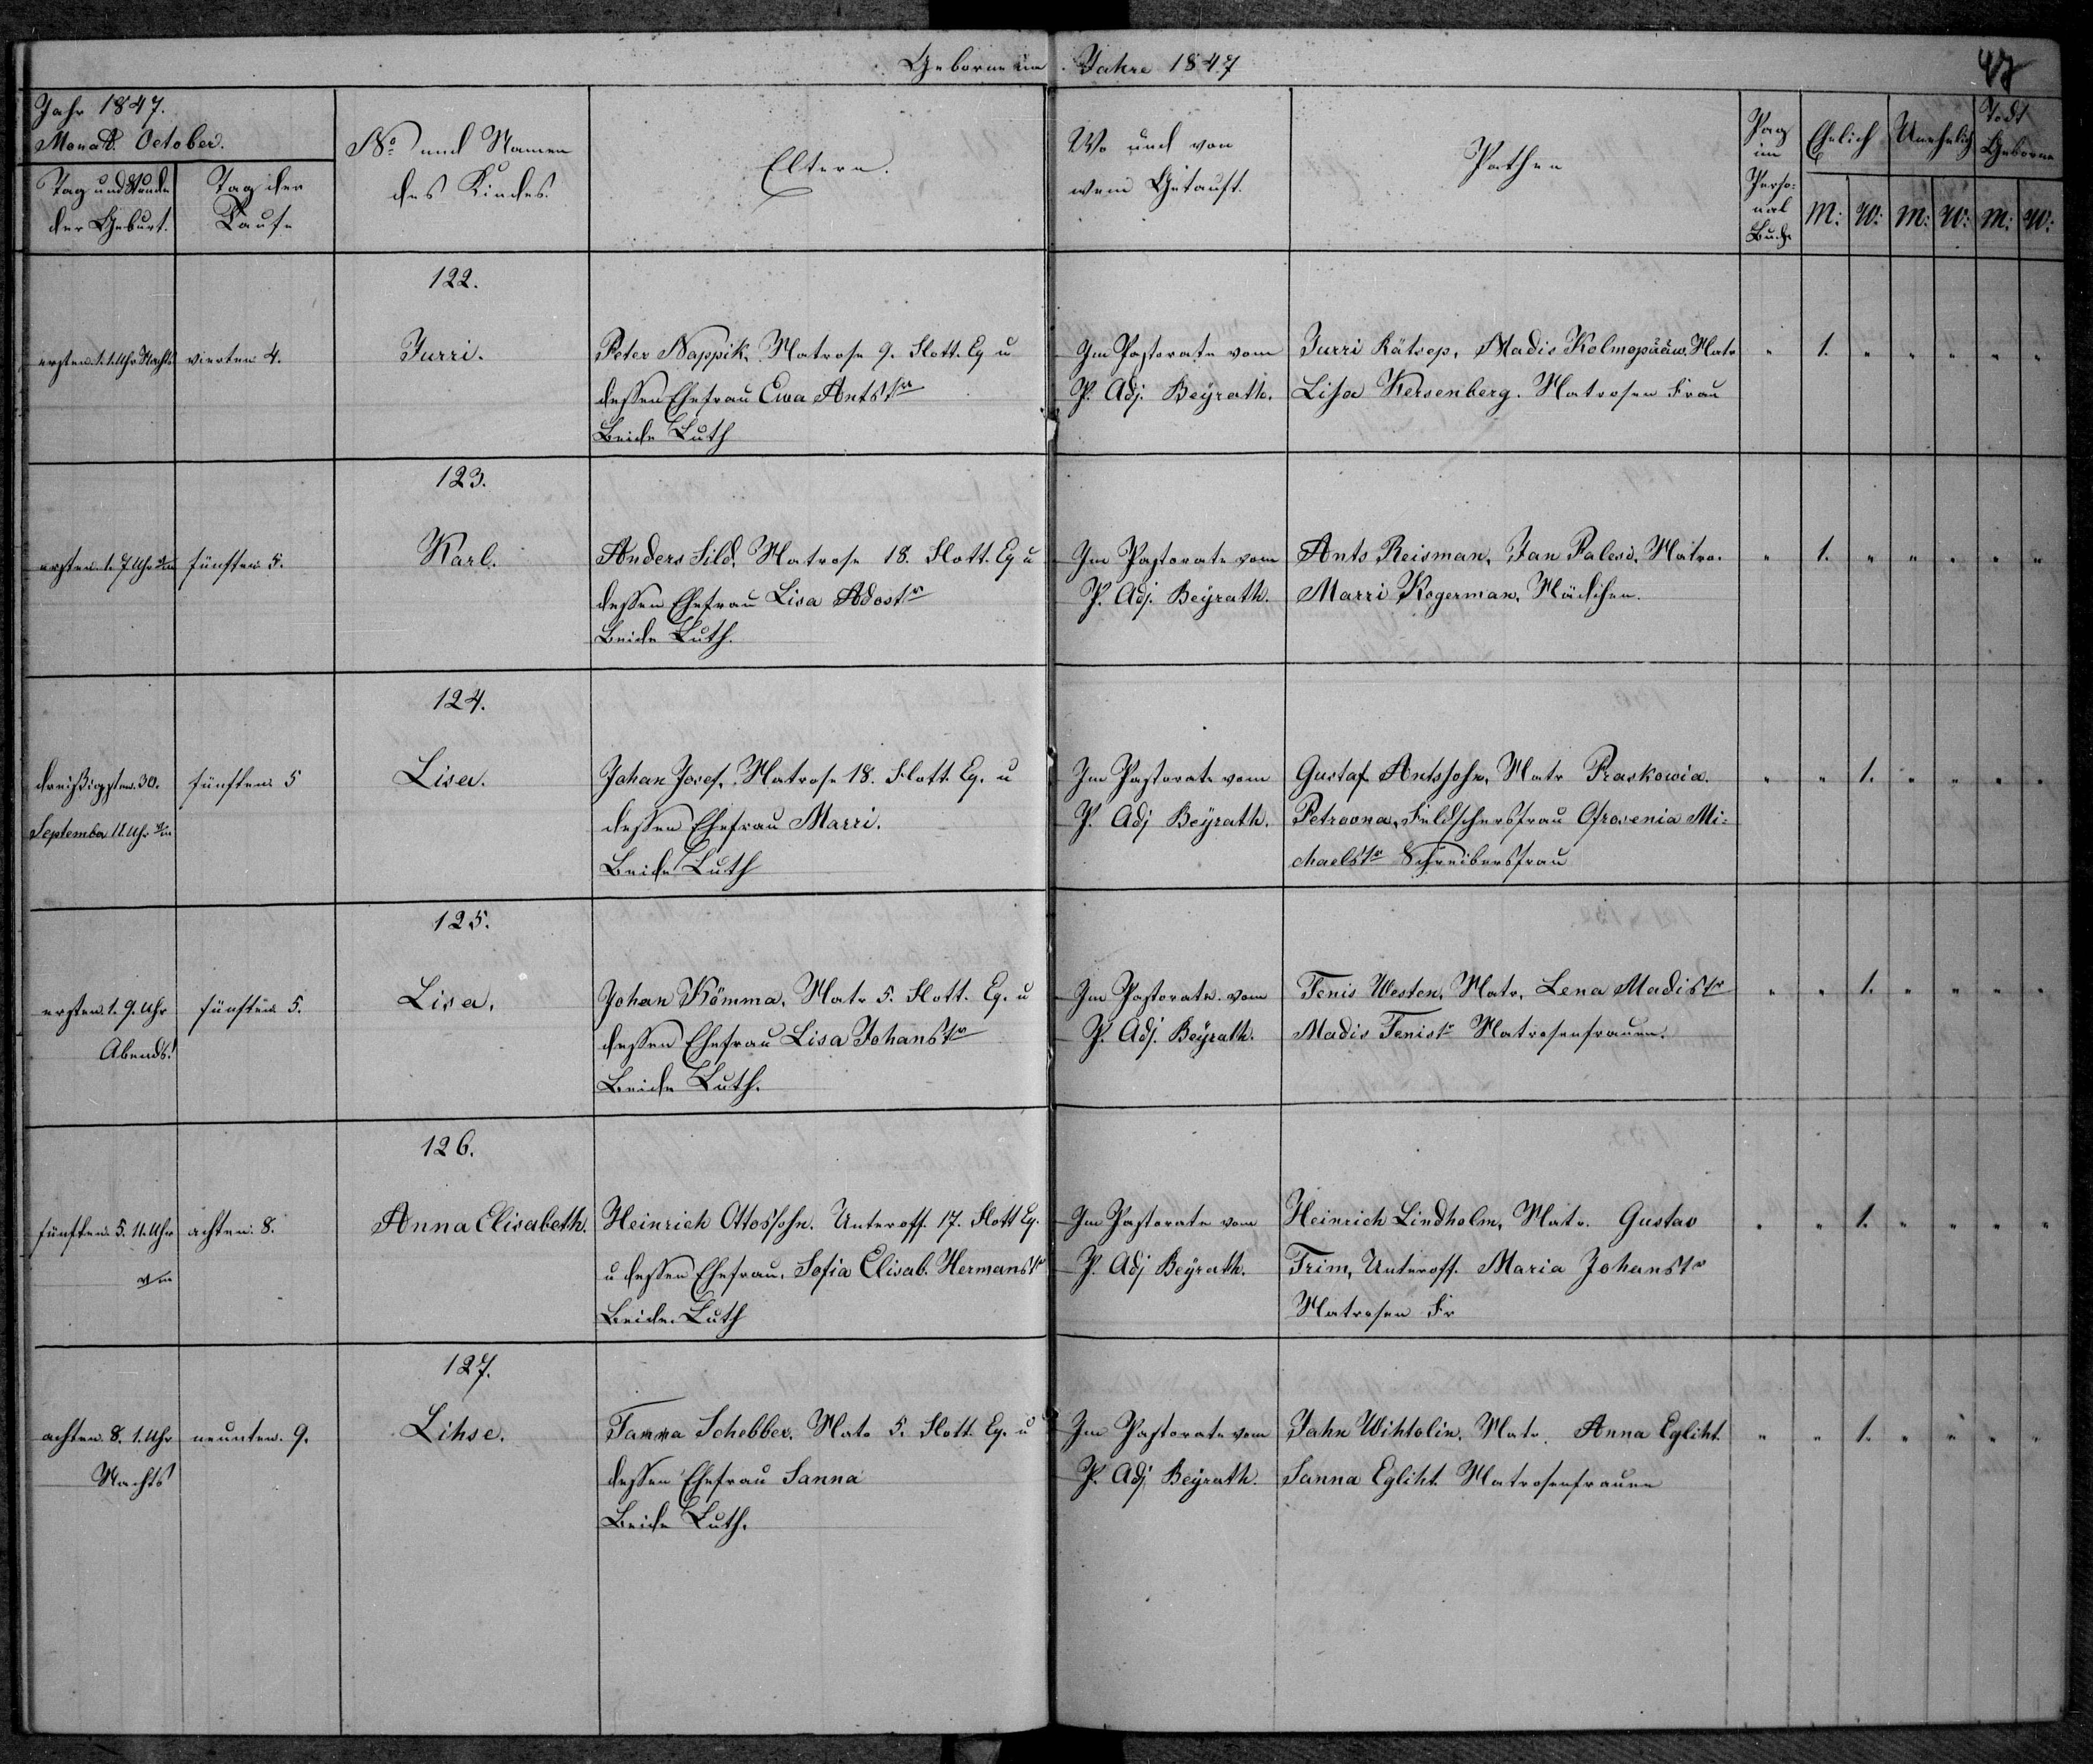 Geborne im Jahre 1847
47
Jahr 1847.
Monat. October.
Tag und Stunde der Geburt.
Tag der Taufe
No und Namen des Kindes.
Eltern.
Wo und von wem Getauft.
Pathen
Pag im Perso:nal Buche
Ehelich
Unehelich
Todt Geborne
M: W: M: W: M: W:
122.
ersten. 1. 1. Uhr Nachts
vierten 4.
Jurri.
Peter Nappik. Matrose 9. Flott. Eq u
dessen Ehefrau Ewa Antstr
Beide Luth
Im Pastorate vom
P. Adj. Beyrath.
Jurri Rätsep, Madis Kolmopääw. Matr
Lisa Kersenberg. Matrosen Frau
" 1. " " " " "
123.
ersten. 1. 7 Uhr
fünften 5.
Karl.
Anders Sild, Matrose 18. Flott. Eq u
dessen Ehefrau Lisa Adostr
Beide Luth.
Im Pastorate vom
P. Adj. Beyrath.
Ants Reisman, Jan Palesd, Matro.
Marri Kogerman, Mädchen.
" 1. " " " " "
124.
dreißigsten. 30.
September 11 Uhr
fünften 5
Lisa.
Johan Josef, Matrose 18. Flott. Eq. u
dessen Ehefrau Marri.
Beide Luth
Im Pastorate vom
P. Adj Beyrath.
Gustaf Antssohn, Matr Praskowia.
Petrovna, Feldschersfrau Ofrosenia Mi:
chaelstr Schreibersfrau
" " 1. " " " "
125.
ersten. 1. 9. Uhr
Abends.
fünften 5.
Lisa.
Johan Kömma, Matr 5. Flott. Eq. u
dessen Ehefrau Lisa Johanstr
Beide Luth.
Im Pastorate vom
P. Adj. Beyrath.
Tenis Westen, Matr, Lena Madistr
Madis Tenistr Matrosenfrauen.
" " 1. " " " "
126.
fünften 5. 11. Uhr
vm
achten. 8.
Anna Elisabeth.
Heinrich Ottossohn. Unteroff. 17. Flott Eq.
u dessen Ehefrau, Sofia Elisab. Hermanstr
Beide Luth
Im Pastorate vom
P. Adj Beyrath.
Heinrich Lindholm, Matr. Gustav
Trim, Unteroff. Maria Johanstr
Matrosen Fr
" " 1. " " " "
127.
achten. 8. 1. Uhr
Nachts
neunten. 9.
Lihse.
Tanna Schebber. Matr 5. Flott. Eq. u
dessen Ehefrau Sanna
Beide Luth.
Im Pastorate vom
P. Adj Beyrath.
Jahn Wihtolin. Matr. Anna Egliht.
Sanna Egliht. Matrosenfrauen
" " 1. " " " "